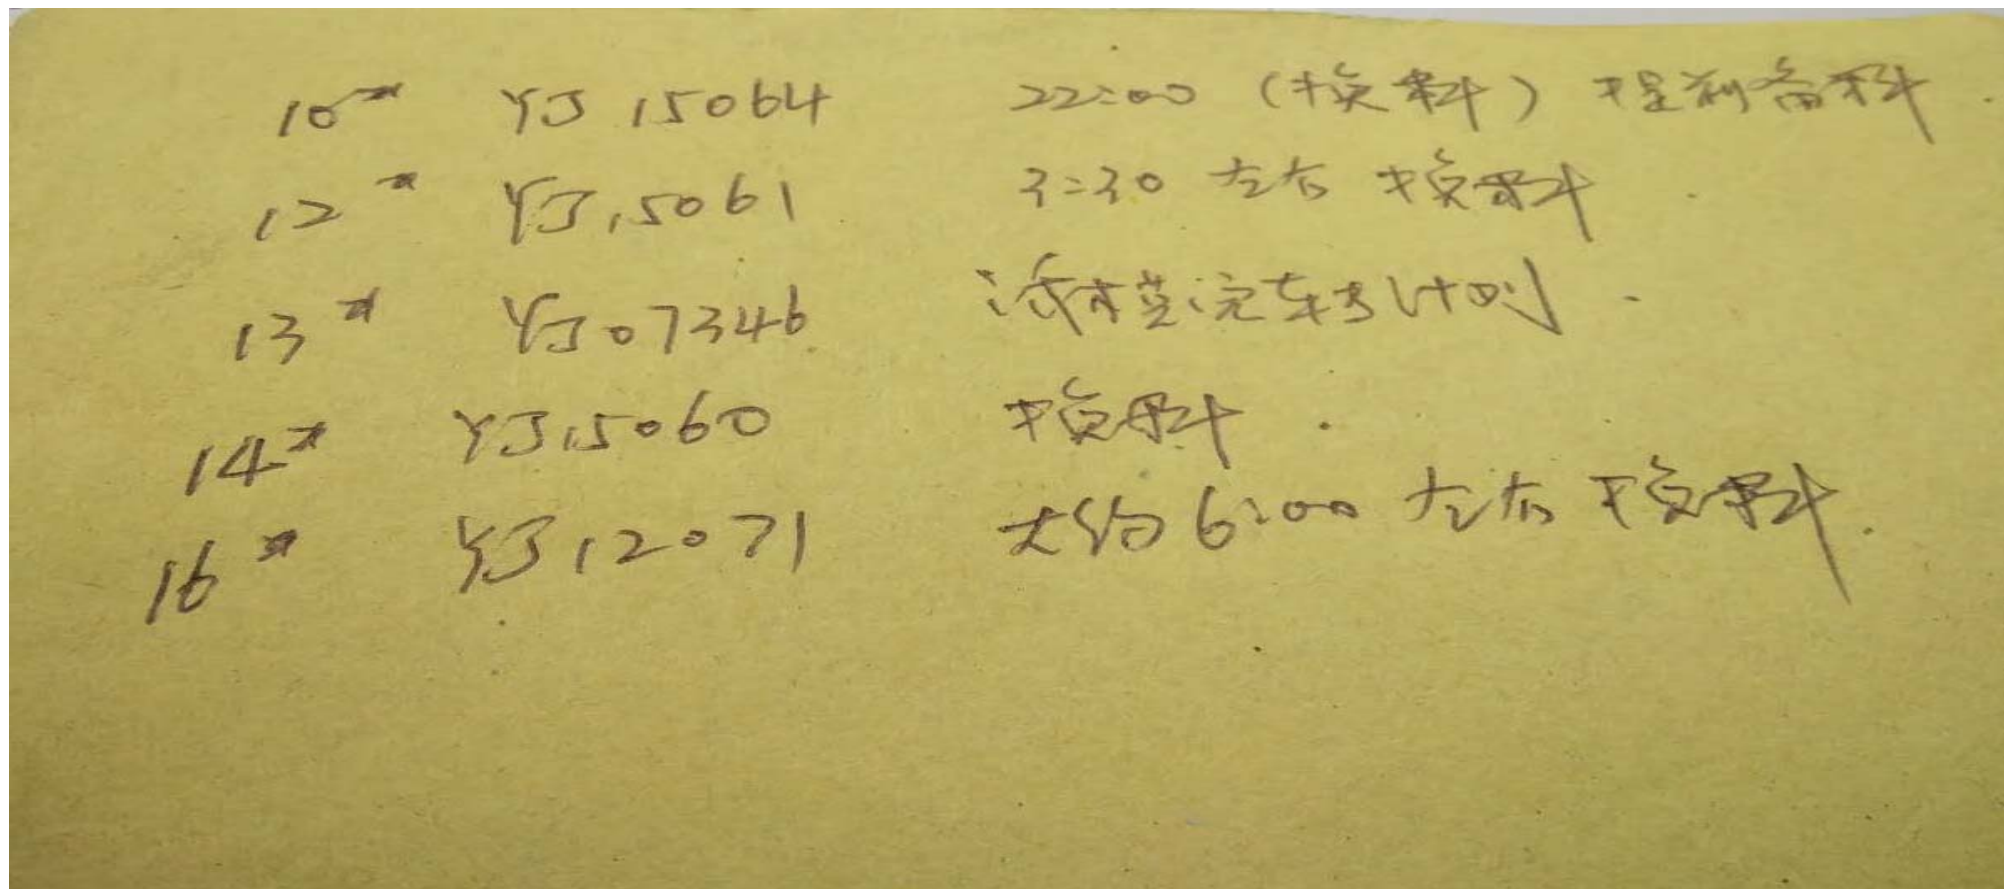 10# YJ 15064 22:00 (换料) 提前备料
12# YJ15061 3:30 左右 换料
13# YJ07346 派模完转计划
14# YJ15060 换料
16# YJ12071 大约6:00 左右 换料.